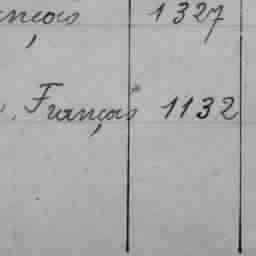 ançois 1327
, François 1132